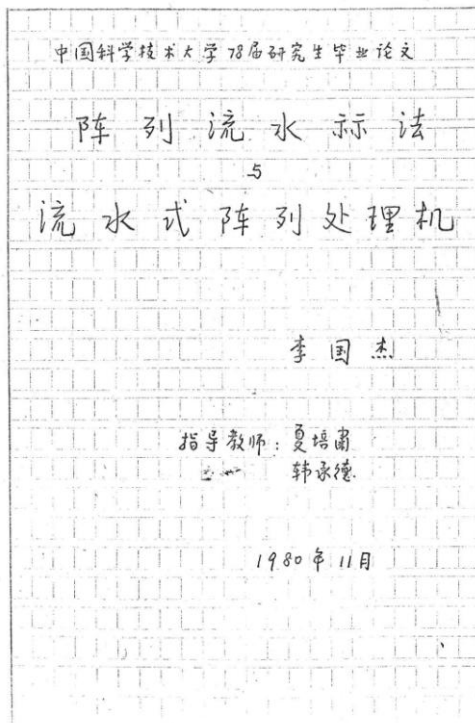 中国科学技术大学78届研究生毕业论文
阵列流水祘法
与
流水式阵列处理机
李国杰
指导教师：夏培肃
韩承德
1980年11月